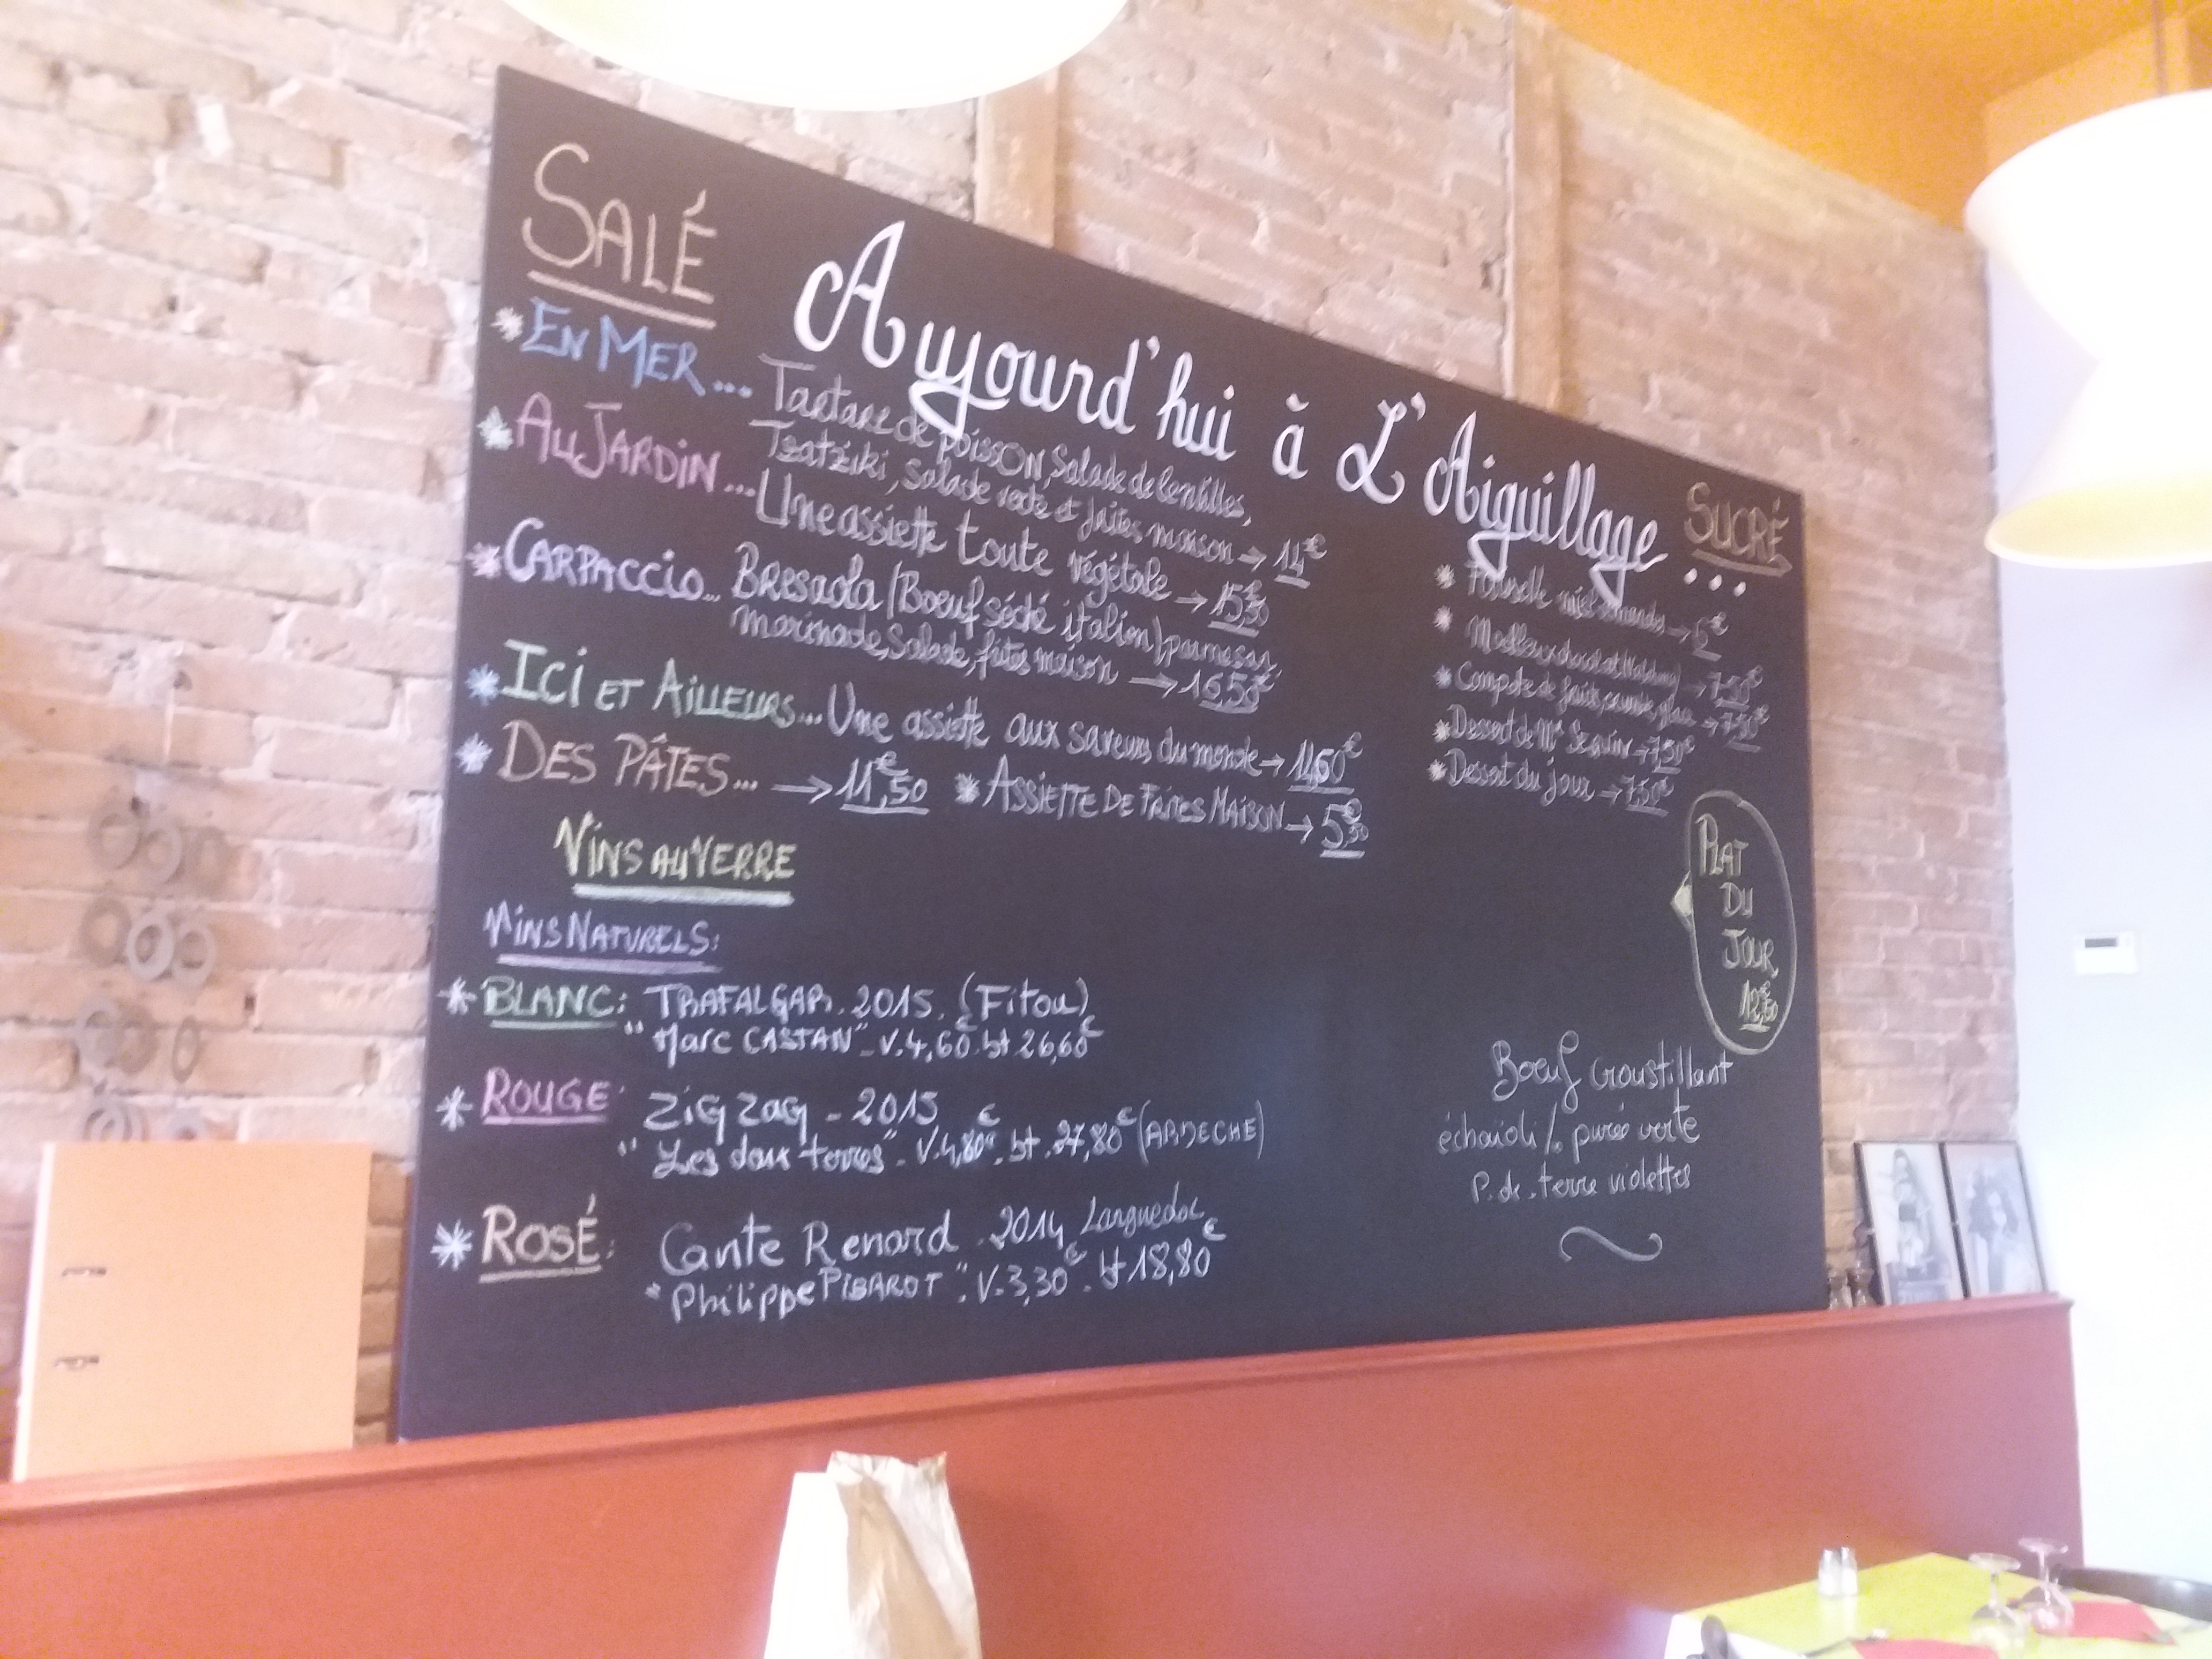 SALÉ
Aujourd'hui à L'Aiguillage...
* EN MER... Tartare de poisson, Salade de lentilles,
Tzatziki, Salade verte et frites maison → 14€
* AU JARDIN... Une assiette toute végétale → 15€50
* CARPACCIO... Bresaola (Boeuf séché italien) parmesan,
marinade, Salade, frites maison → 16,50€
* ICI ET AILLEURS... Une assiette aux saveurs du monde → 14,60€
* DES PÂTES... → 11€,50 * ASSIETTE DE FRITES MAISON → 5€,50
SUCRÉ
* miel amandes → 6€
* Moelleux chocolat → 7,50€
* Compote de fruits, glace → 7,50€
* Dessert de Mr Seguin → 7,50€
* Dessert du jour → 7,50€
VINS AU VERRE
VINS NATURELS:
* BLANC: TRAFALGAR. 2015. (Fitou)
"Marc CASTAN" - V. 4,60€ bt 26,60€
* ROUGE: ZIG ZAG - 2015
"Les deux terres" - V. 4,80€. bt. 27,80€ (ARDECHE)
* ROSÉ: Cante Renard. 2014 Languedoc
"Philippe PIBAROT". V- 3,30€. bt 18,80€
PLAT
DU
JOUR
12€,60
Boeuf croustillant
purée verte
P. de. terre violettes